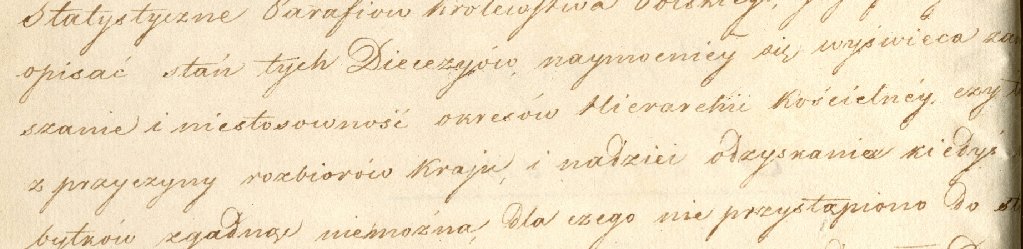 Statystyczne Parafiow Krolewstwa Polskiego,
opisać stan tych Diecezyów, naymocniey się wyświeca
szanie i niestosowność okresów Hierarchii Kościelnéy, czyt
z przyczyny rozbiorów Kraju, i nadziei odzyskania kiedyś
bytków zgadnąć niemożna, dla czego nie przystąpiono do